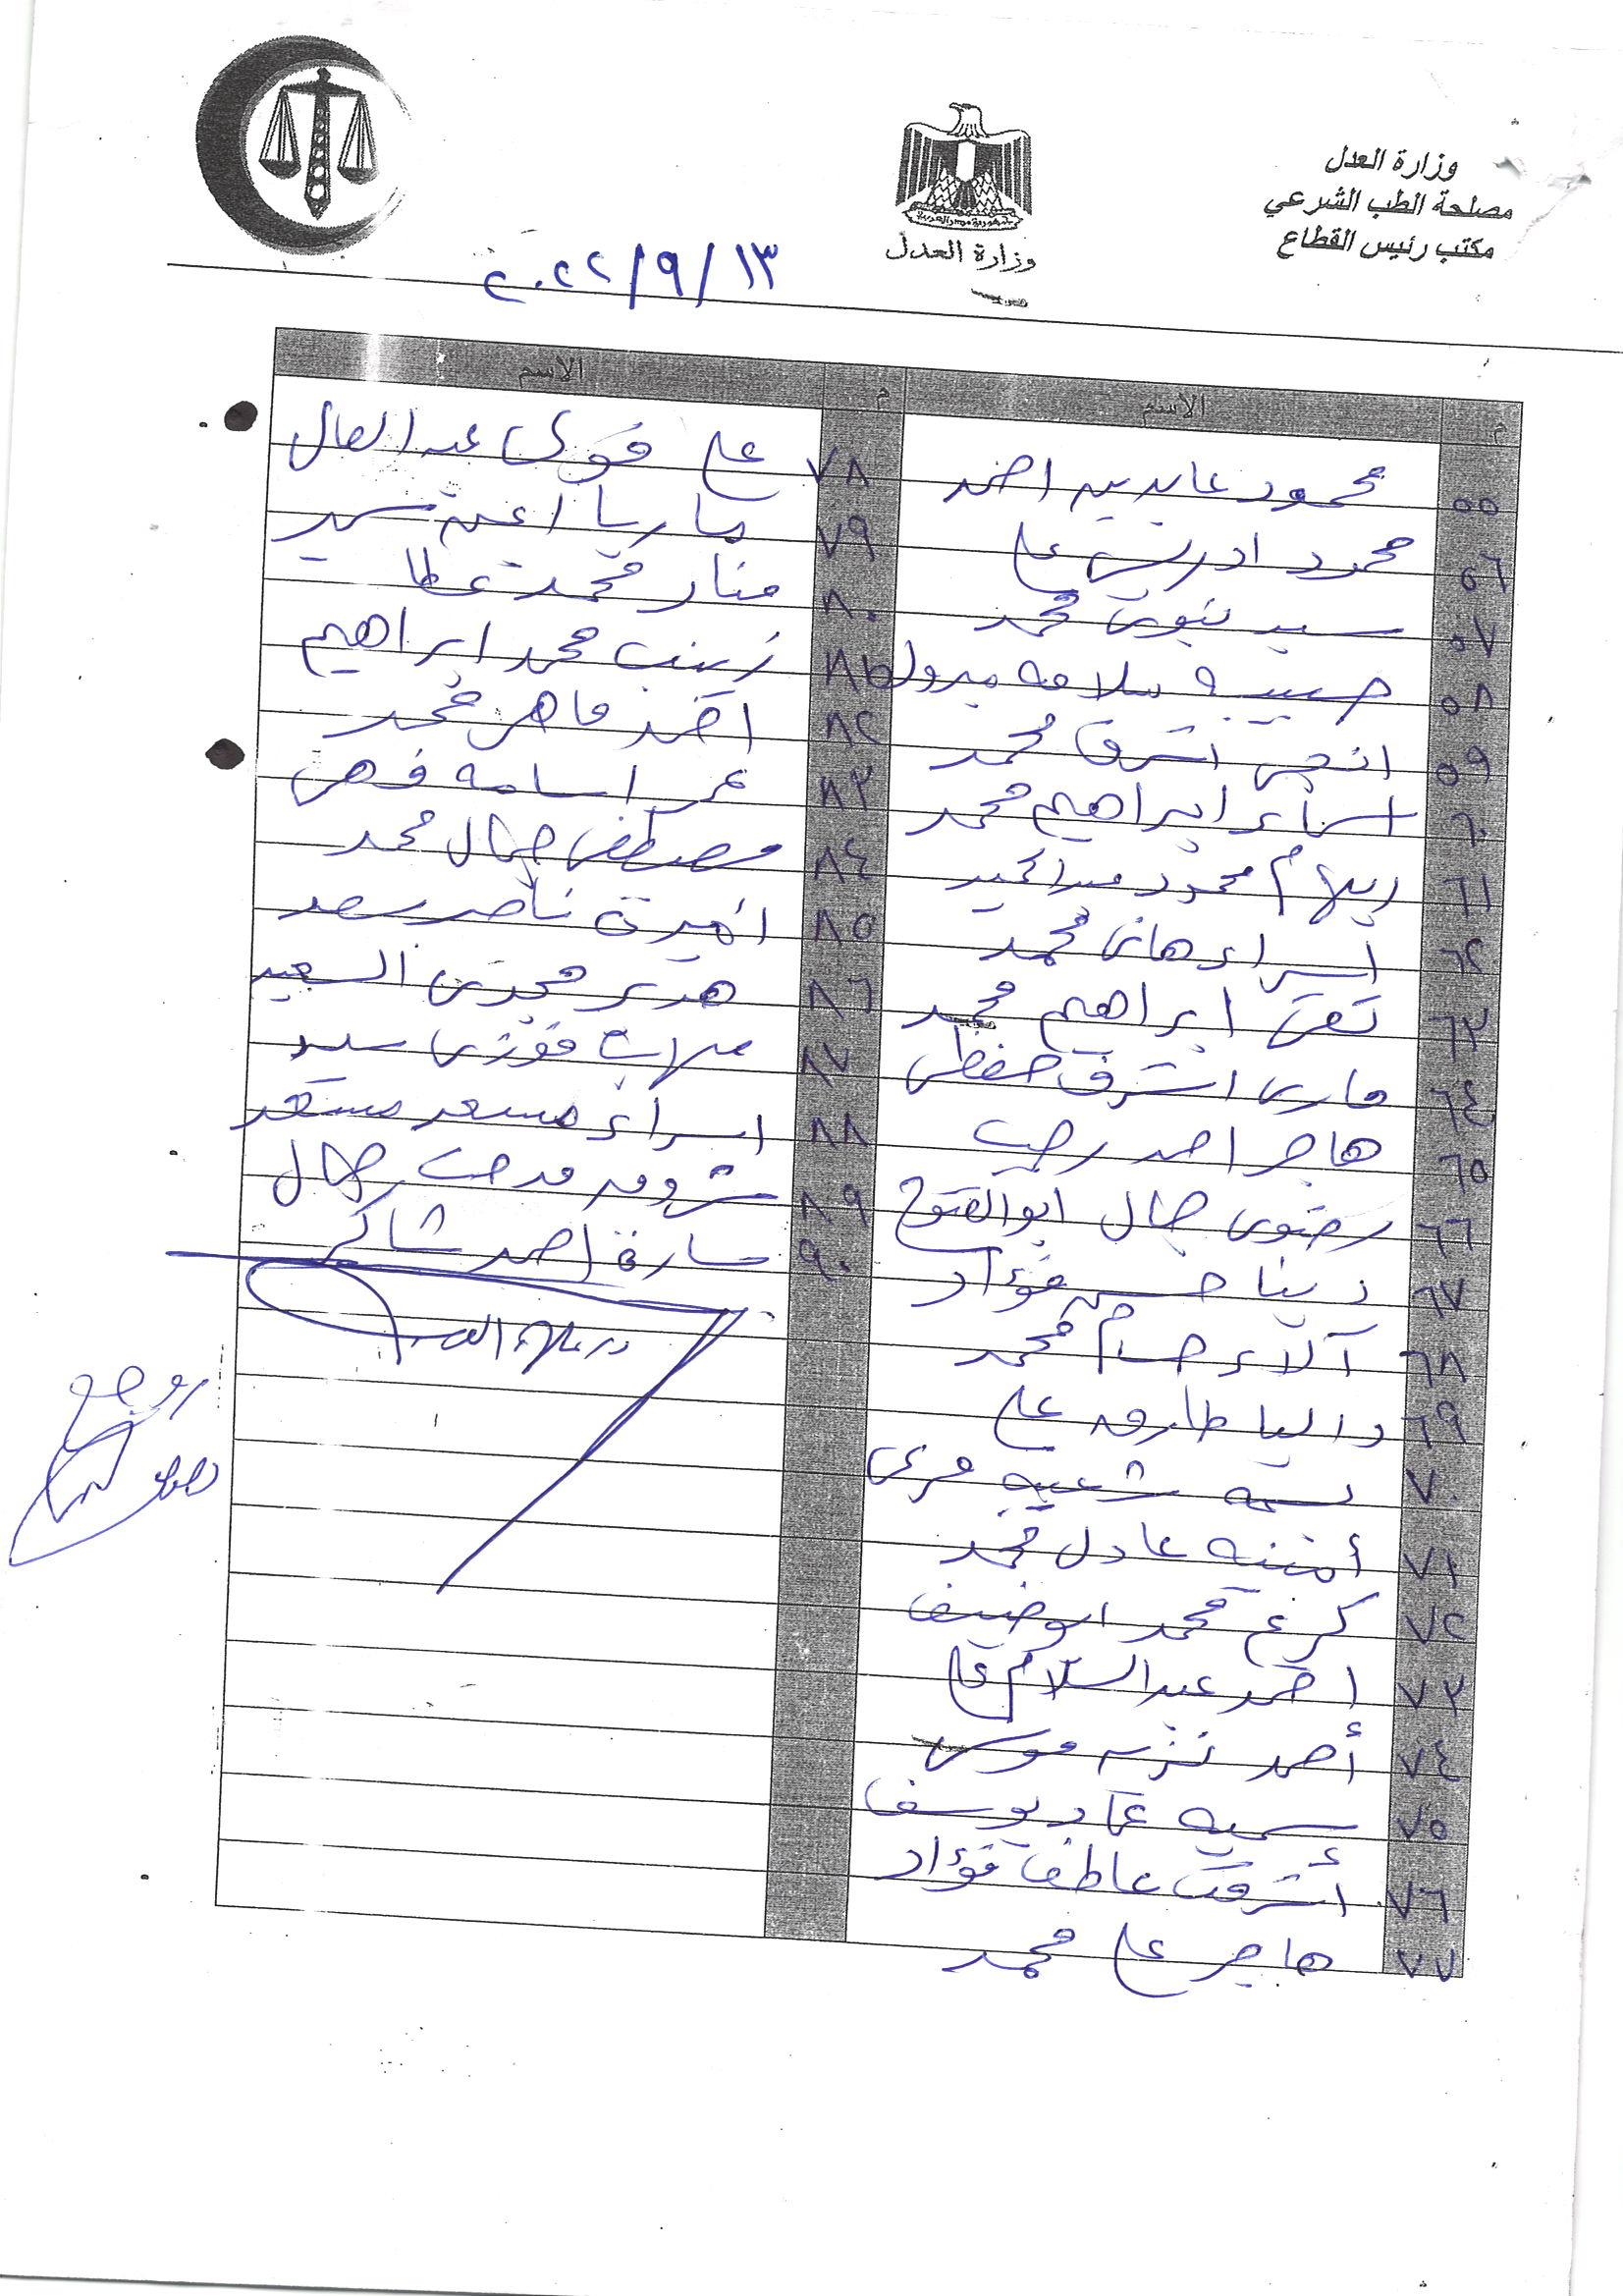 وزارة العدل
مصلحة الطب الشرعي
مكتب رئيس القطاع
وزارة العدل
٢٠٢٢/٩/١٣
م الاسم
٥٥ محمود عابدين احمد
٥٦ محمود ادريس علي
٥٧ سيد نبوي محمد
٥٨ حبيبه سلامه مبروك
٥٩ انجي اشرف محمد
٦٠ اسماء ابراهيم محمد
٦١ ريهام محمود عبدالحميد
٦٢ إسراء هاني محمد
٦٣ تقى ابراهيم محمد
٦٤ مارى اشرف حفظى
٦٥ هاجر احمد رجب
٦٦ رضوى جمال ابوالفتوح
٦٧ دينا حسن فؤاد
٦٨ آلاء حسام محمد
٦٩ داليا طارق على
٧٠ بسمه شعبيه
٧١ أمنيه عادل محمد
٧٢ كريم محمد ابوضيف
٧٣ احمد عبدالسلام علي
٧٤ أحمد نزيه موسى
٧٥ سميه عماد يوسف
٧٦ أشرقت عاطف فؤاد
٧٧ هاجر علي محمد
م الاسم
٧٨ علي عبدالعال
٧٩ ماريا سمير
٨٠ منار محمد عطا
٨١ زينب محمد ابراهيم
٨٢ احمد ماهر محمد
٨٣ عمر اسامه فهمى
٨٤ مصطفى جمال محمد
٨٥ اميرة ناصر سعد
٨٦ هدير مجدى السعيد
٨٧ مهاب فوزى سيد
٨٨ اسراء مسعد مسعد
٨٩ شروق مدحت جمال
٩٠ سارة احمد شاكر